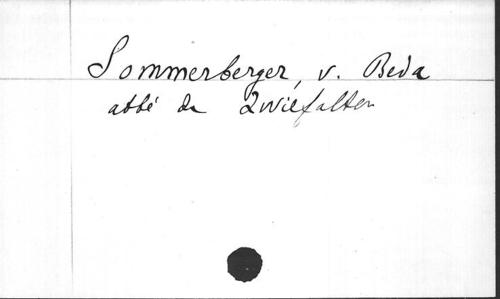 Sommerberger, v. Beda
abbé da Zwiefalten